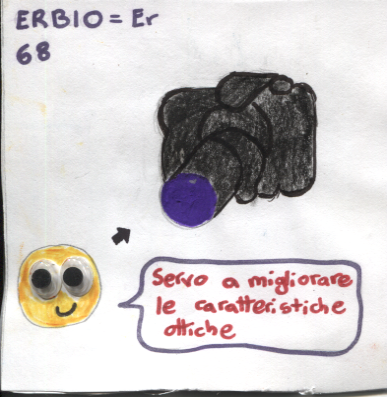 ERBIO = Er
68
Servo a migliorare
le caratteristiche
ottiche